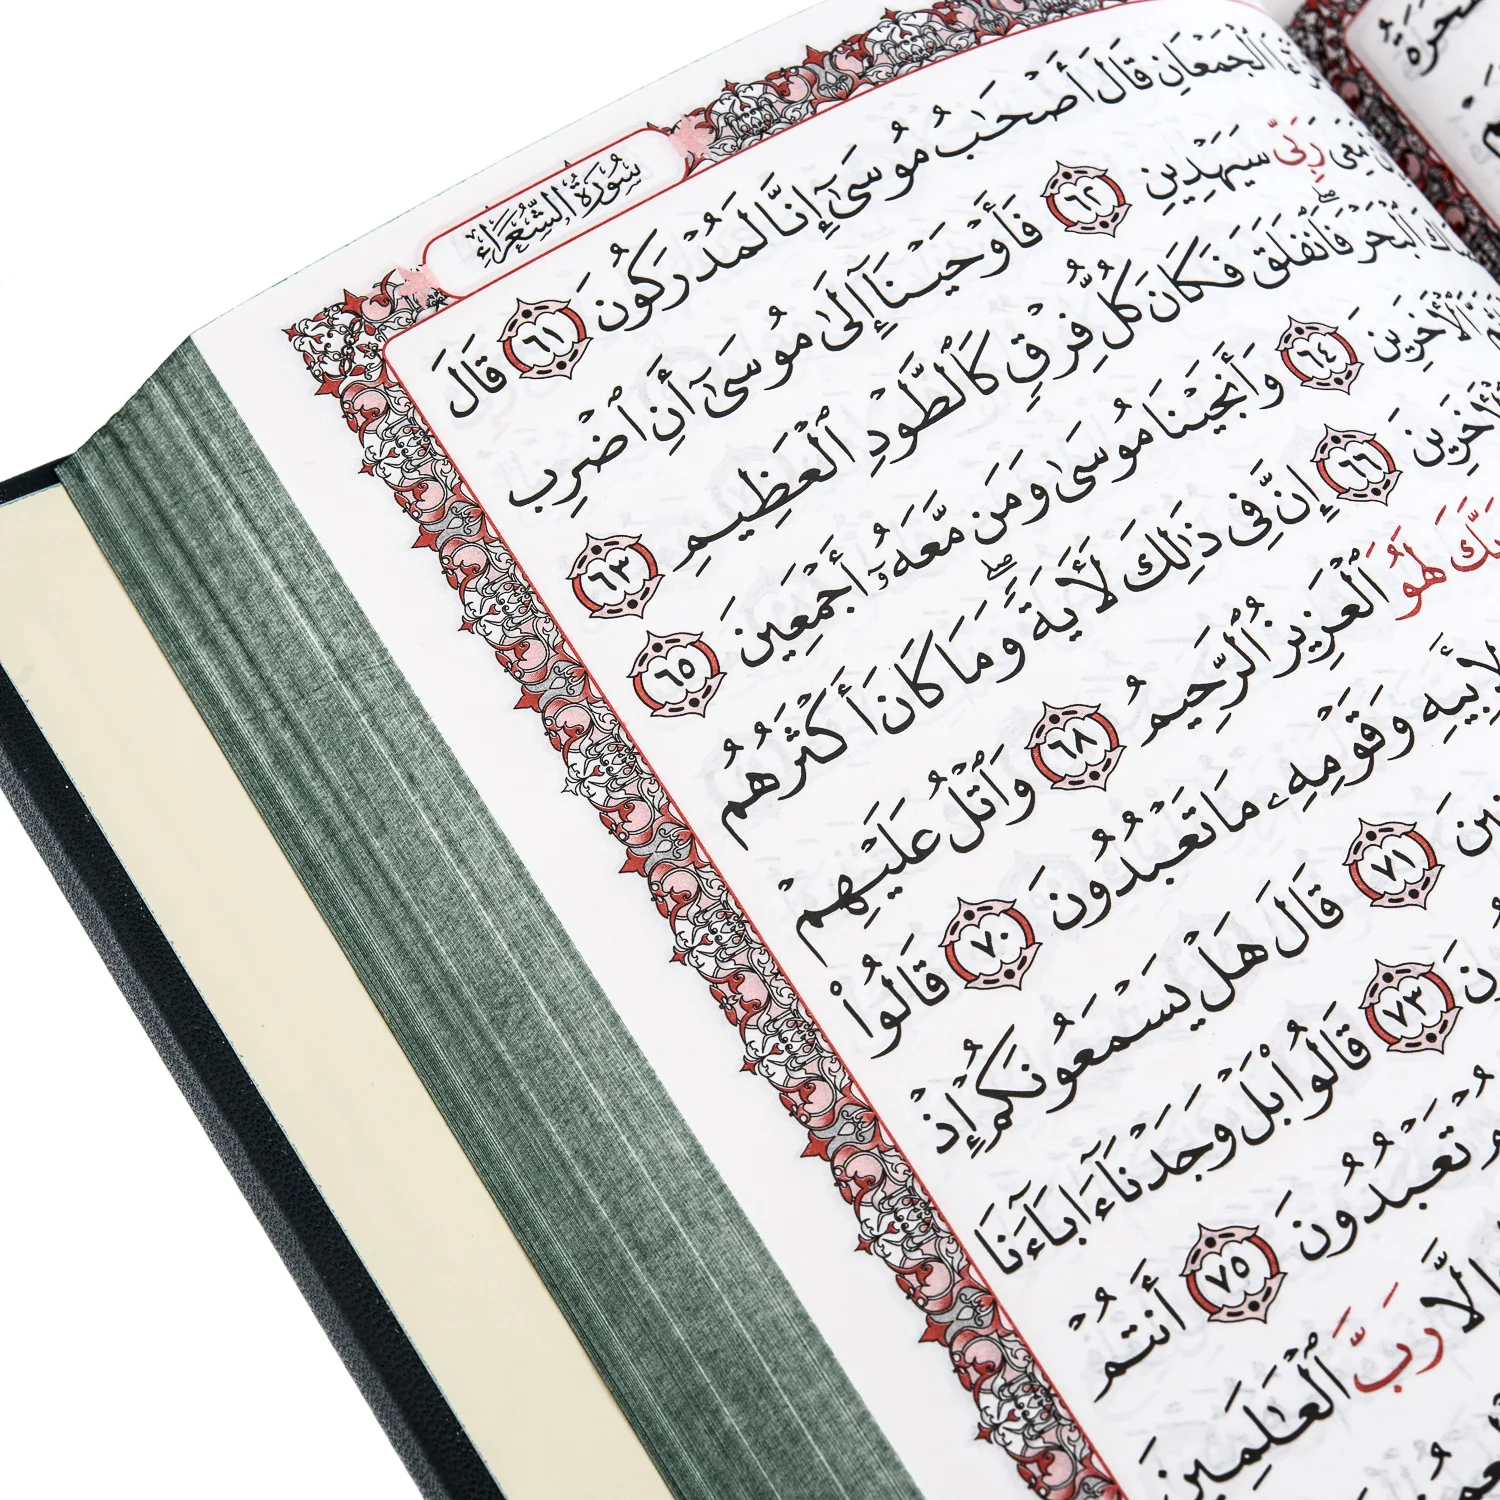 سُورَةُ الشُّعَرَاءِ
ٱلْجَمْعَانِ قَالَ أَصْحَٰبُ مُوسَىٰٓ إِنَّا لَمُدْرَكُونَ ٦١ قَالَ
مَعِىَ رَبِّى سَيَهْدِينِ ٦٢ فَأَوْحَيْنَآ إِلَىٰ مُوسَىٰٓ أَنِ ٱضْرِب
ٱلْبَحْرَ ۖ فَٱنفَلَقَ فَكَانَ كُلُّ فِرْقٍ كَٱلطَّوْدِ ٱلْعَظِيمِ ٦٣
ٱلْأَخَرِينَ ٦٤ وَأَنجَيْنَا مُوسَىٰ وَمَن مَّعَهُۥٓ أَجْمَعِينَ ٦٥
ٱلْأَخَرِينَ ٦٦ إِنَّ فِى ذَٰلِكَ لَأَيَةً ۖ وَمَا كَانَ أَكْثَرُهُم
لَهُوَ ٱلْعَزِيزُ ٱلرَّحِيمُ ٦٨ وَٱتْلُ عَلَيْهِمْ
لِأَبِيهِ وَقَوْمِهِۦ مَا تَعْبُدُونَ ٧٠ قَالُوا۟
٧١ قَالَ هَلْ يَسْمَعُونَكُمْ إِذْ
٧٣ قَالُوا۟ بَلْ وَجَدْنَآ ءَابَآءَنَا
تَعْبُدُونَ ٧٥ أَنتُمْ
إِلَّا رَبَّ ٱلْعَٰلَمِينَ